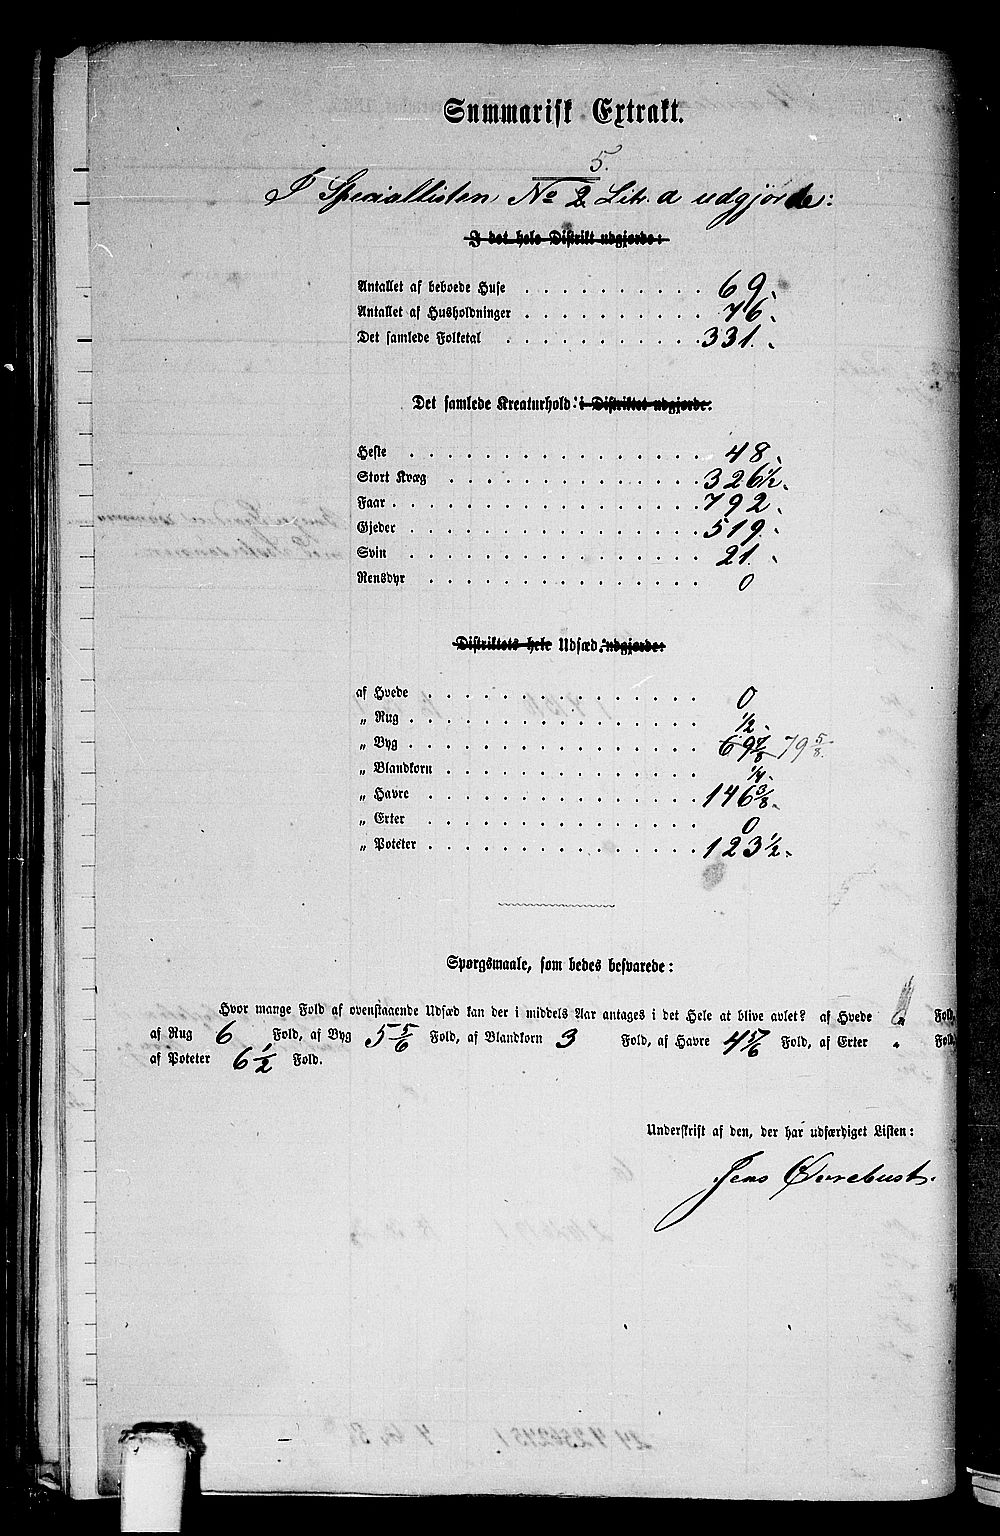 Summarisk Extrakt.
5.
I Speciallisten No 2 Litr. a udgjorde:
I det hele Distrikt udgjorde:
Antallet af beboede Huse . . . . . . . . . . 69.
Antallet af Husholdninger . . . . . . . . . . 76.
Det samlede Folketal . . . . . . . . . . . 331.
Det samlede Kreaturhold: i Distriktet udgjorde:
Heste . . . . . . . . . . . . . . . . 48.
Stort Kvæg . . . . . . . . . . . . . . 326 1/2.
Faar . . . . . . . . . . . . . . . . . 792.
Gjeder . . . . . . . . . . . . . . . . 519.
Svin . . . . . . . . . . . . . . . . 21.
Rensdyr . . . . . . . . . . . . . . . 0
Distriktets hele Udsæd: udgjorde:
af Hvede . . . . . . . . . . . . . . . 0
„ Rug . . . . . . . . . . . . . . . . 1/2.
„ Byg . . . . . . . . . . . . . . . . 69 7/8 79 5/8.
„ Blandkorn . . . . . . . . . . . . . . 1/4.
„ Havre . . . . . . . . . . . . . . . 146 3/8.
„ Erter . . . . . . . . . . . . . . . 0
„ Poteter . . . . . . . . . . . . . . . 123 1/2.
Spørgsmaale, som bedes besvarede:
Hvor mange Fold af ovenstaaende Udsæd kan der i middels Aar antages i det Hele at blive avlet? af Hvede Fold,
af Rug 6 Fold, af Byg 5 5/6 Fold, af Blandkorn 3 Fold, af Havre 4 5/6 Fold, af Erter Fold,
af Poteter 6 1/2 Fold.
Underskrift af den, der har udfærdiget Listen:
Jens Øvrebust.